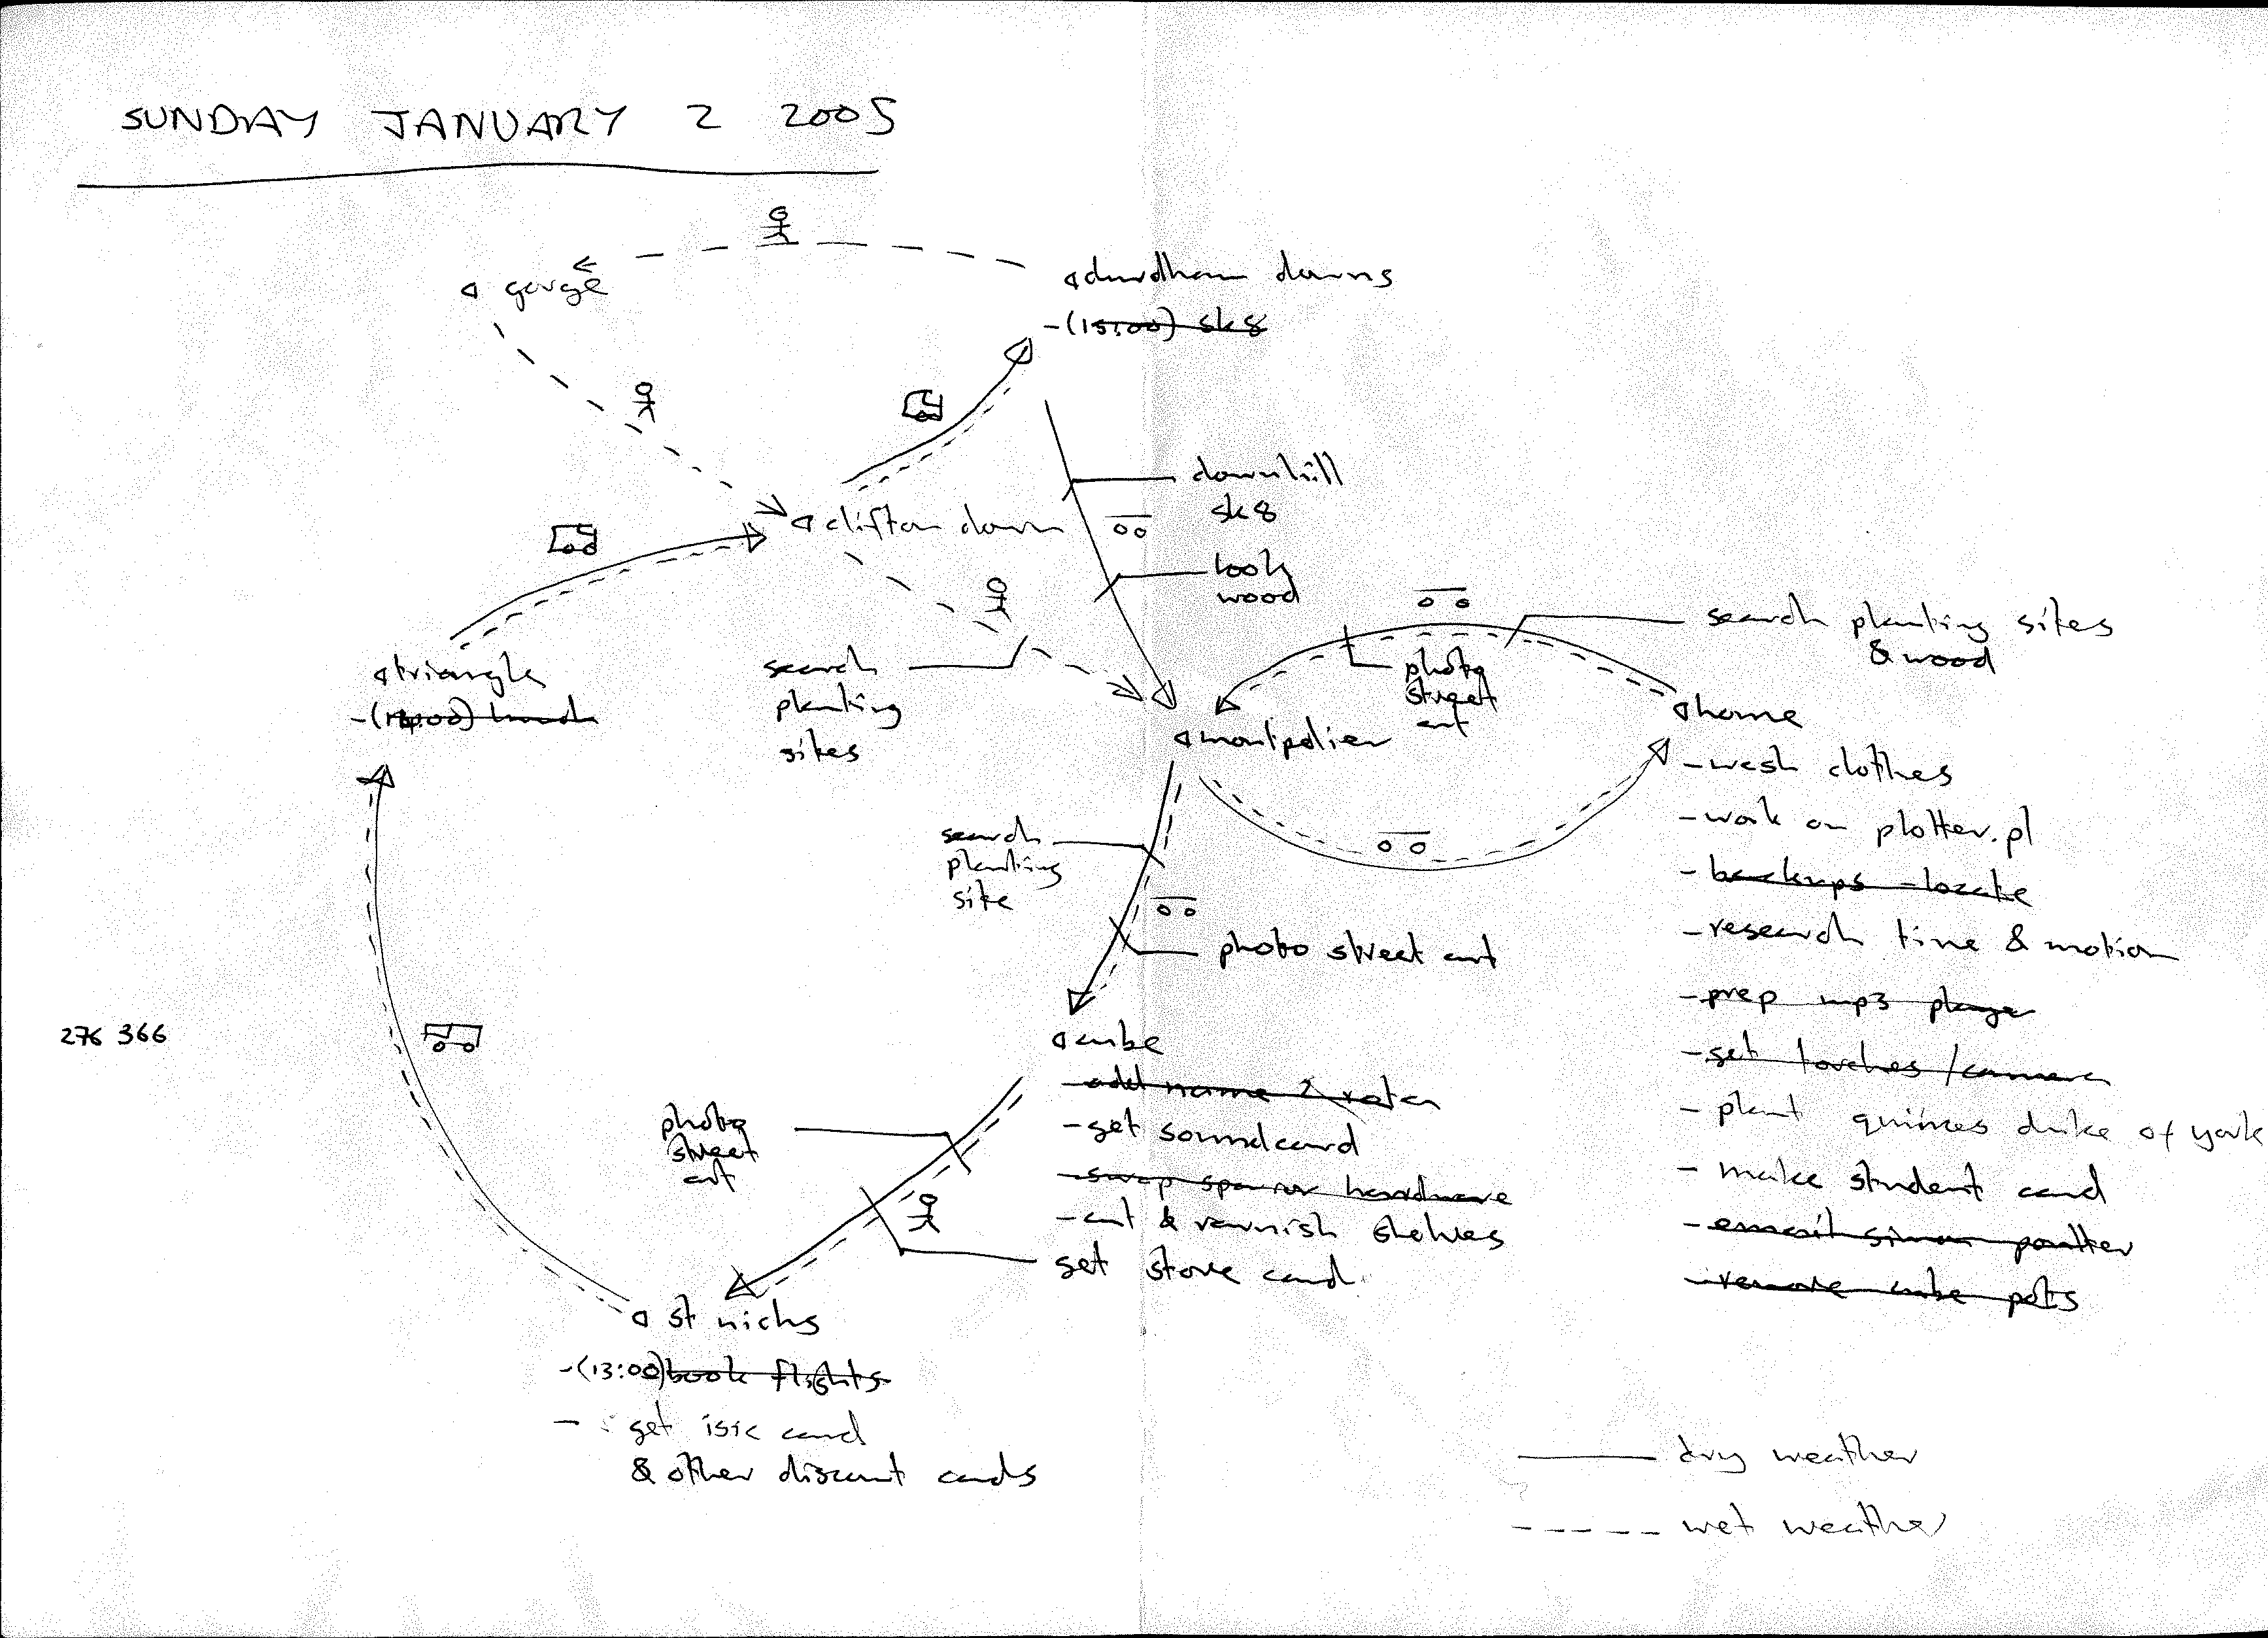 SUNDAY JANUARY 2 2005
gorge
durdham downs
-(15:00) sk8
downhill
sk8
clifton down
look
wood
search planting sites
& wood
triangle
search
planting
sites
photo
street
art
montpelier
home
- wash clothes
- work on plotter.pl
- backups - locate
- research time & motion
- prep mp3 player
- get torches / camera
- plant quinces duke of york
- make student card
- email simon poulter
- remove cube pots
search
planting
site
photo street art
276 366
cube
- add name 2 rota
- get soundcard
- swap spanner hardware
- cut & varnish shelves
get store card
photo
street
art
st nichs
-(13:00) book flights
- get isic card
& other discount cards
dry weather
wet weather